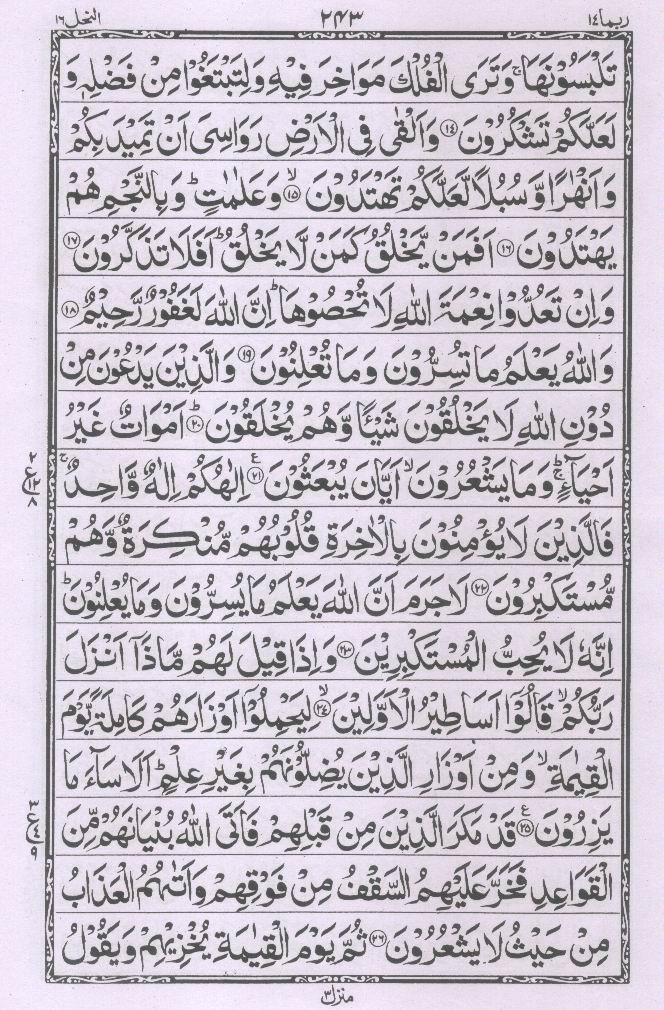 ربما ۱۴ ۲۴۳ النحل ۱۶
تَلْبَسُوْنَهَا ۚ وَتَرَى الْفُلْكَ مَوَاخِرَ فِيْهِ وَلِتَبْتَغُوْا مِنْ فَضْلِهٖ وَ
لَعَلَّكُمْ تَشْكُرُوْنَ ⑭ وَاَلْقٰى فِى الْاَرْضِ رَوَاسِىَ اَنْ تَمِيْدَ بِكُمْ
وَاَنْهٰرًا وَّسُبُلًا لَّعَلَّكُمْ تَهْتَدُوْنَ ۙ⑮ وَعَلٰمٰتٍ ؕ وَبِالنَّجْمِ هُمْ
يَهْتَدُوْنَ ⑯ اَفَمَنْ يَّخْلُقُ كَمَنْ لَّا يَخْلُقُ ؕ اَفَلَا تَذَكَّرُوْنَ ⑰
وَاِنْ تَعُدُّوْا نِعْمَةَ اللّٰهِ لَا تُحْصُوْهَا ؕ اِنَّ اللّٰهَ لَغَفُوْرٌ رَّحِيْمٌ ⑱
وَاللّٰهُ يَعْلَمُ مَا تُسِرُّوْنَ وَمَا تُعْلِنُوْنَ ⑲ وَالَّذِيْنَ يَدْعُوْنَ مِنْ
دُوْنِ اللّٰهِ لَا يَخْلُقُوْنَ شَيْـًٔا وَّهُمْ يُخْلَقُوْنَ ؕ⑳ اَمْوَاتٌ غَيْرُ
اَحْيَآءٍ ۚ وَمَا يَشْعُرُوْنَ ۙ اَيَّانَ يُبْعَثُوْنَ ㉑ع اِلٰهُكُمْ اِلٰهٌ وَّاحِدٌ ۚ
۲ ع ۱۲ ۸
فَالَّذِيْنَ لَا يُؤْمِنُوْنَ بِالْاٰخِرَةِ قُلُوْبُهُمْ مُّنْكِرَةٌ وَّهُمْ
مُّسْتَكْبِرُوْنَ ㉒ لَا جَرَمَ اَنَّ اللّٰهَ يَعْلَمُ مَا يُسِرُّوْنَ وَمَا يُعْلِنُوْنَ ؕ
اِنَّهٗ لَا يُحِبُّ الْمُسْتَكْبِرِيْنَ ㉓ وَاِذَا قِيْلَ لَهُمْ مَّاذَاۤ اَنْزَلَ
رَبُّكُمْ ۙ قَالُوْۤا اَسَاطِيْرُ الْاَوَّلِيْنَ ۙ㉔ لِيَحْمِلُوْۤا اَوْزَارَهُمْ كَامِلَةً يَّوْمَ
الْقِيٰمَةِ ۙ وَمِنْ اَوْزَارِ الَّذِيْنَ يُضِلُّوْنَهُمْ بِغَيْرِ عِلْمٍ ؕ اَلَا سَآءَ مَا
يَزِرُوْنَ ㉕ع قَدْ مَكَرَ الَّذِيْنَ مِنْ قَبْلِهِمْ فَاَتَى اللّٰهُ بُنْيَانَهُمْ مِّنَ
۳ ع ۴ ۹
الْقَوَاعِدِ فَخَرَّ عَلَيْهِمُ السَّقْفُ مِنْ فَوْقِهِمْ وَاَتٰىهُمُ الْعَذَابُ
مِنْ حَيْثُ لَا يَشْعُرُوْنَ ㉖ ثُمَّ يَوْمَ الْقِيٰمَةِ يُخْزِيْهِمْ وَيَقُوْلُ
منزل ۳